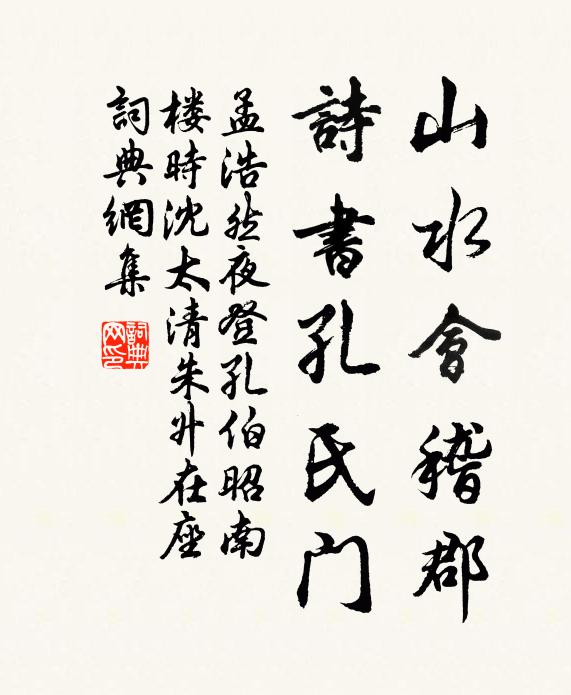 山水會稽郡
詩書孔氏门
孟浩然夜登孔伯昭南
楼時沈太清朱升在座
詞典網集
詞典
网印